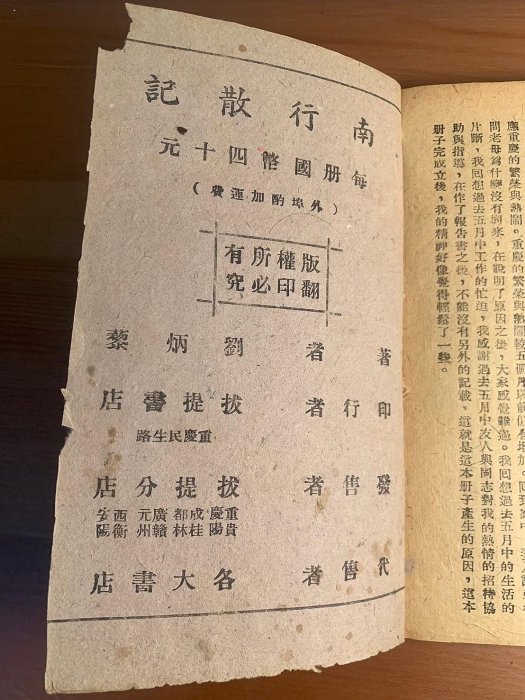 應重慶的繁榮與熱鬧。重慶的繁榮與熱鬧較五個月以前似有增加。回到家中,
問老母爲什麽沒有同來,在說明了原因之後,大家感覺難過。我回想過去五月中的生活的
片斷,我回想過去五月中工作的忙迫,我感謝過去五月中友人與同志對我的熱情的招待協
助與指導,在作了報告書之後,不能沒有另外的記載,這就是這本册子產生的原因,這本
册子完成立後,我的精神好像覺得輕鬆了一些。
南行散記
每册國幣四十元
(外埠酌加運費)
版權所有
翻印必究
著者 劉炳藜
印行者 拔提書店
重慶民生路
發售者 拔提分店
重慶 成都 廣元 西安
貴陽 桂林 贛州 衡陽
代售者 各大書店